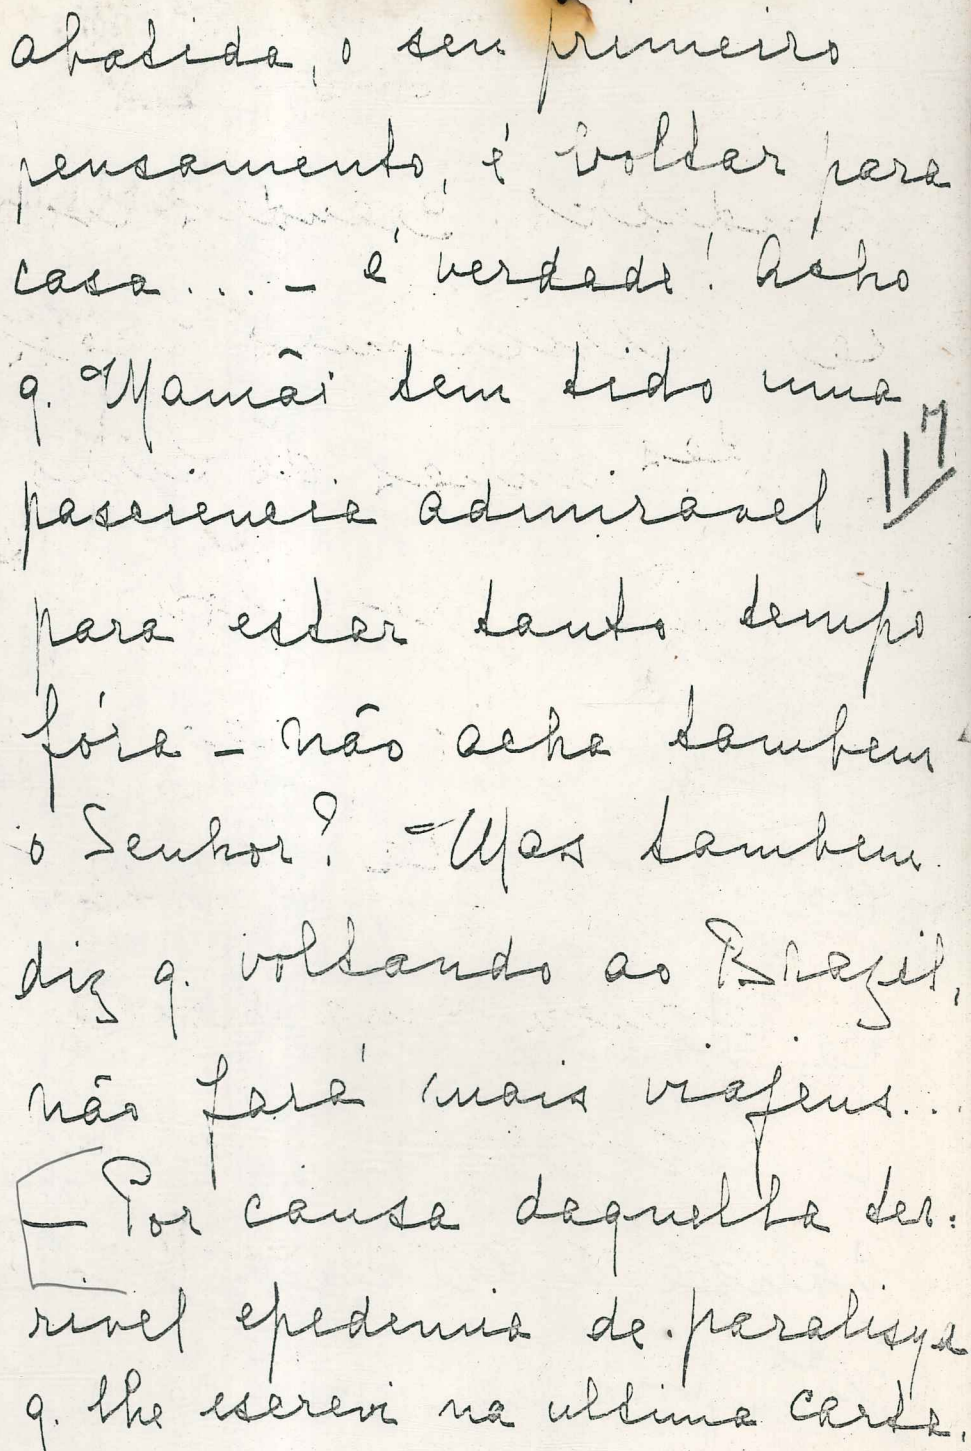 abatida, o seu primeiro
pensamento, é voltar para
casa.... – é verdade! Acho
q. Mamãi tem tido uma
pasciencia admiravel
para estar tanto tempo
fóra – não acha tambem
o Senhor? – Mas tambem
diz q. voltando ao Brazil,
não fará mais viajens...
– Por causa daquella ter:
rivel epedemia de paralisya
q. lhe escrevi na ultima carta,